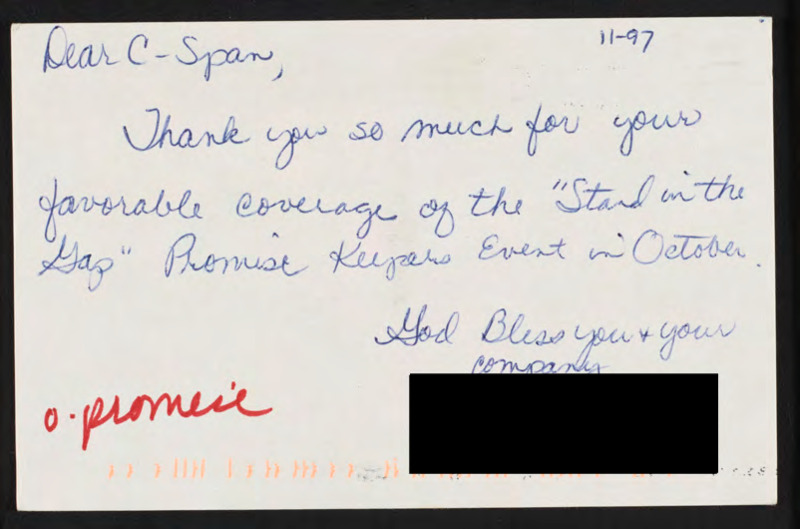 Dear C-Span,
11-97
Thank you so much for your
favorable coverage of the "Stand in the
Gap" Promise Keepers Event in October.
God Bless you + your
company
o-promise